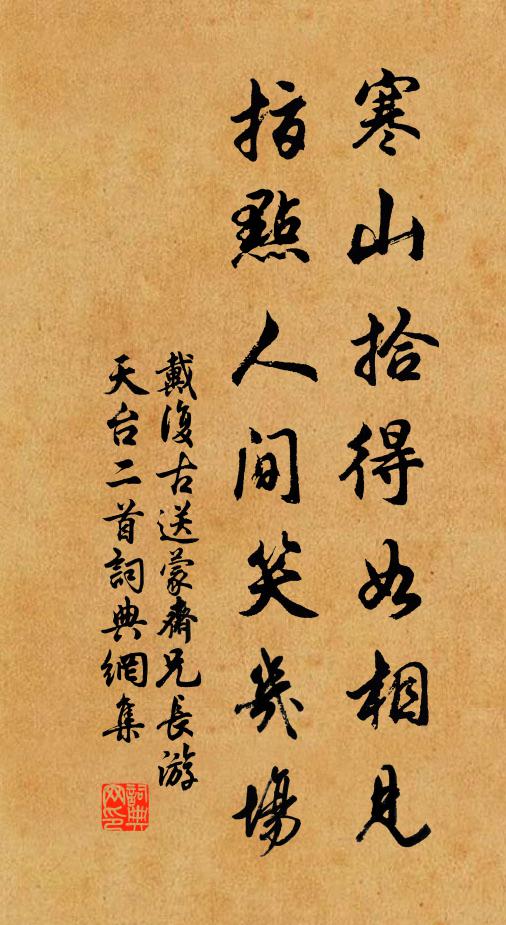 寒山拾得如相見
指點人間笑幾場
戴復古送蒙齋兄長游
天台二首詞典網集
詞典網印